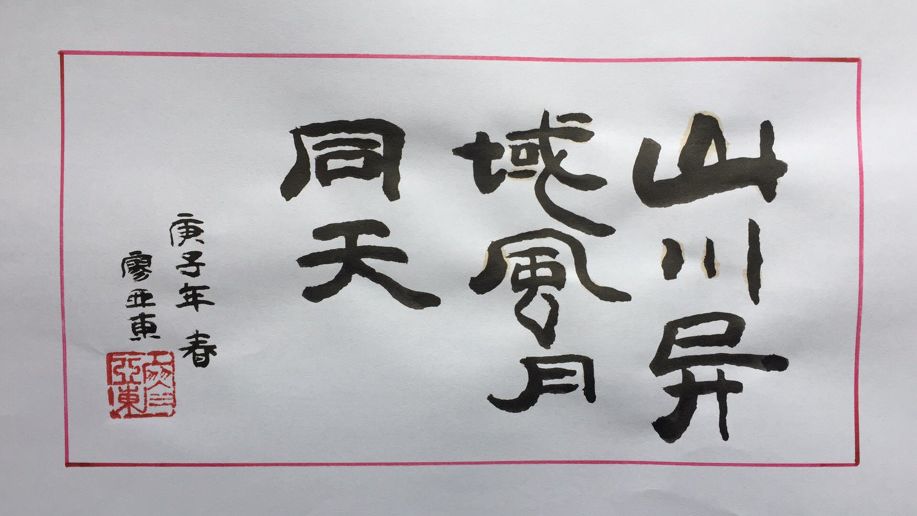 山川异
域風月
同天
庚子年 春
廖亚東
廖亞東